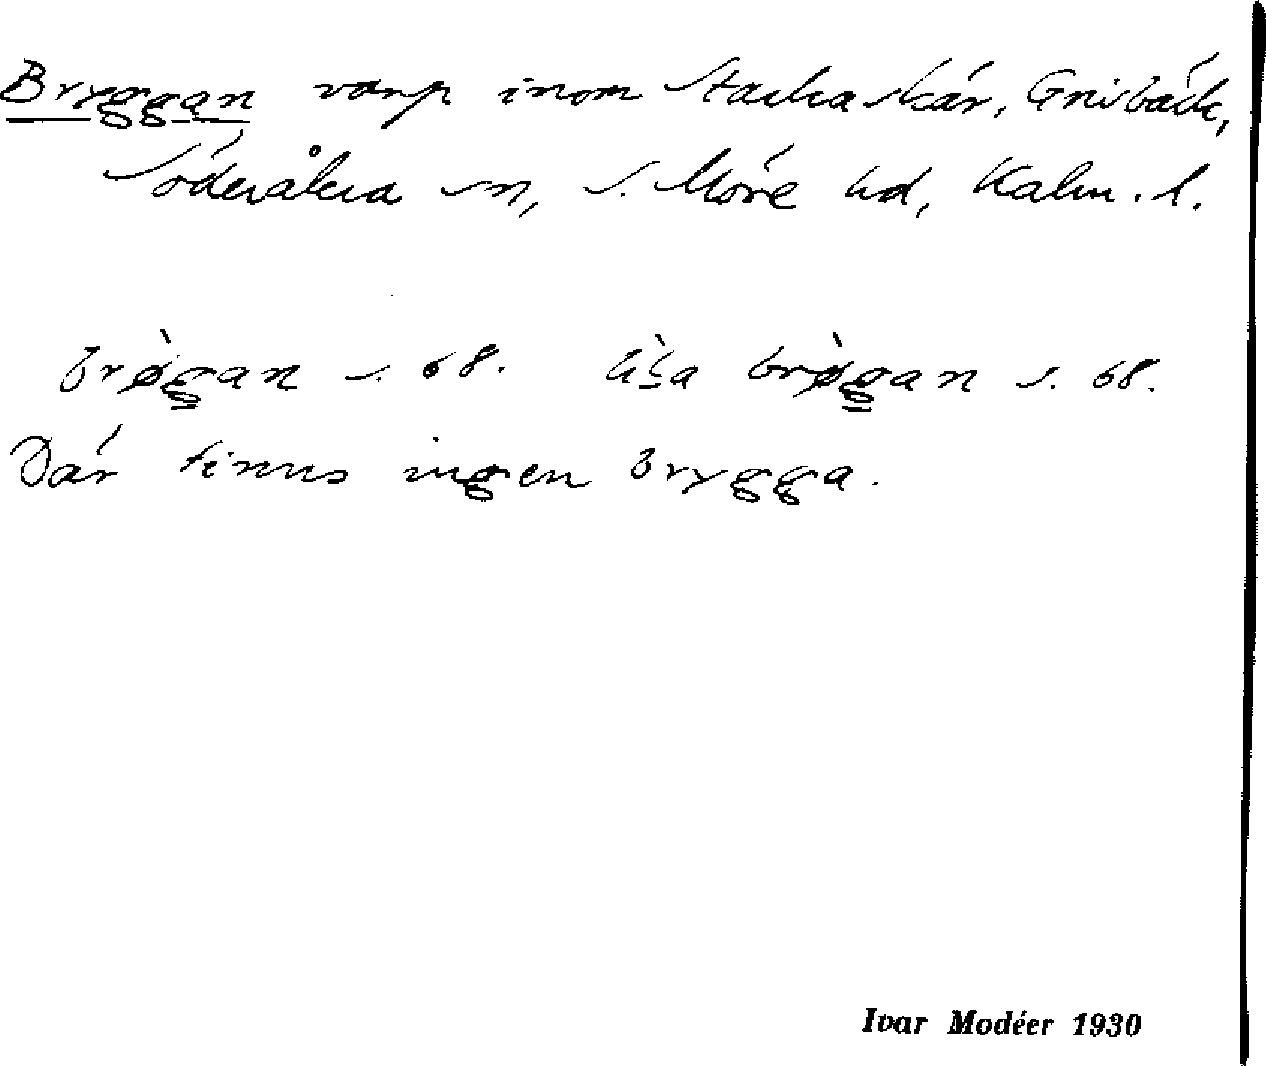 Bryggan varp inom Stackaskär, Grisbäck,
Söderåkra sn, S. Möre hd, Kalm. l.
brø̀gan s. 68. lìla brø̀gan s. 68.
Där finns ingen brygga.
Ivar Modéer 1930